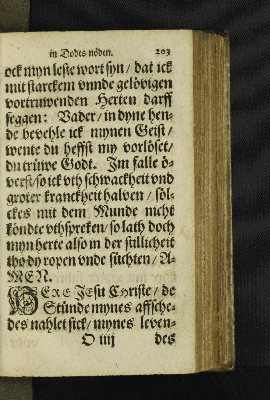 in Dodts nöden. 203
ock myn leste wort syn / dat ick
mit starckem vnnde gelövigen
vortruwenden Herten darff
seggen: Vader / in dyne hen-
de bevehle ick mynen Geist /
wente du hefft my vorlöset /
du trüwe Godt. Im falle ö-
verst / so ick vth schwackheit vnd
groter kranckheit halven / söl-
ckes mit dem Munde nicht
köndte vthspreken / so lath doch
myn herte also in der stillicheit
tho dy ropen vnde süchten / A-
MEN.
HERE JEsu Christe / de
Stünde mynes affsche-
des nahlet sick / mynes leven-
O iiij des